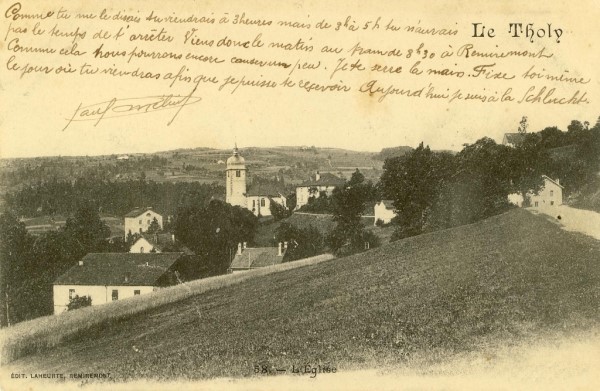 Comme tu me le disais tu viendrais à 3 heures mais de 3h à 5h tu n'aurais
Le Tholy
pas le temps de t'arrêter Viens donc le matin au tram de 8h30 à Remiremont
Comme cela nous pourrons encore causer un peu. Je te serre la main. Fixe toi même
le jour où tu viendras afin que je puisse te recevoir Aujourd'hui je suis à la Schlucht.
Paul
58. — L'Église
ÉDIT. LAHEURTE, REMIREMONT.